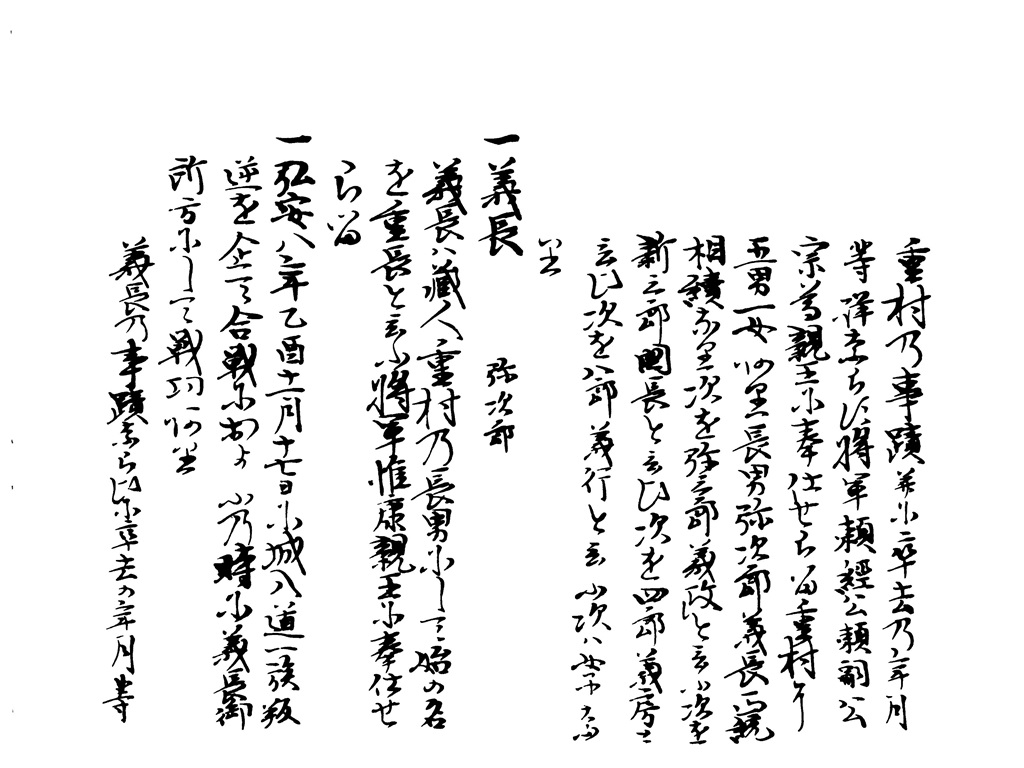 重村乃事蹟并尓卒去乃年月
等詳ならす将軍頼経公頼嗣公
宗尊親王尓奉仕せらる重村
五男一女あり長男弥次郎義長
相続なり次を弥三郎義政と云ふ次を
新三郎国長と云ひ次を四郎義房と
云ひ次を八郎義行と云ふ次ハ女子
なり
一義長 弥次郎
義長ハ蔵人重村乃長男尓して始の名
を重長と云ふ将軍惟康親王尓奉仕せ
らる
一弘安八年乙酉十一月十七日尓城入道一族叛
逆を企て合戦尓およふ乃時尓義長御
所方尓して戦功あり
義長乃事蹟ならひ尓卒去の年月等